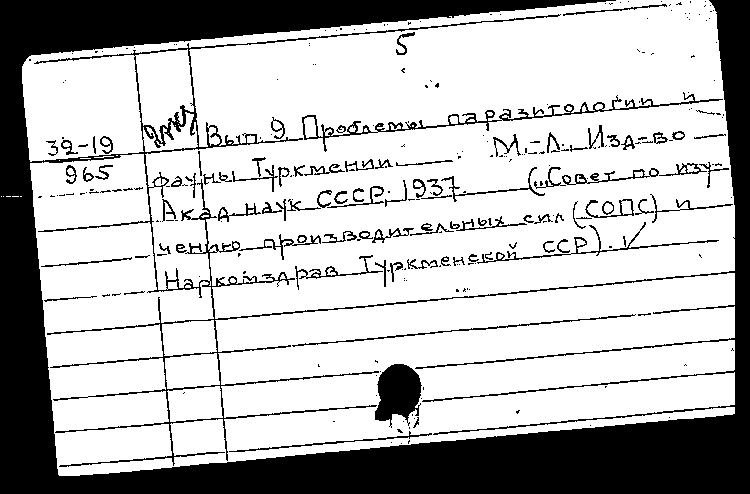 5
32-19
965
Вып. 9. Проблемы паразитологии и
фауны Туркмении. М.-Л., Изд-во
Акад. наук СССР, 1937. („Совет по изу-
чению производительных сил (СОПС) и
Наркомздрав Туркменской ССР). ✓